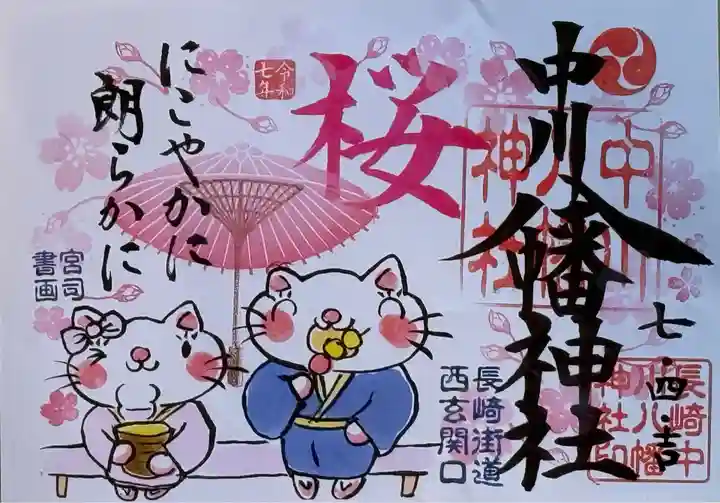 中川八幡神社
七・四・吉
中川
八幡
神社
長崎中
川八幡
神社印
桜
長崎街道
西玄関口
令和
七年
にこやかに
朗らかに
宮司
書画